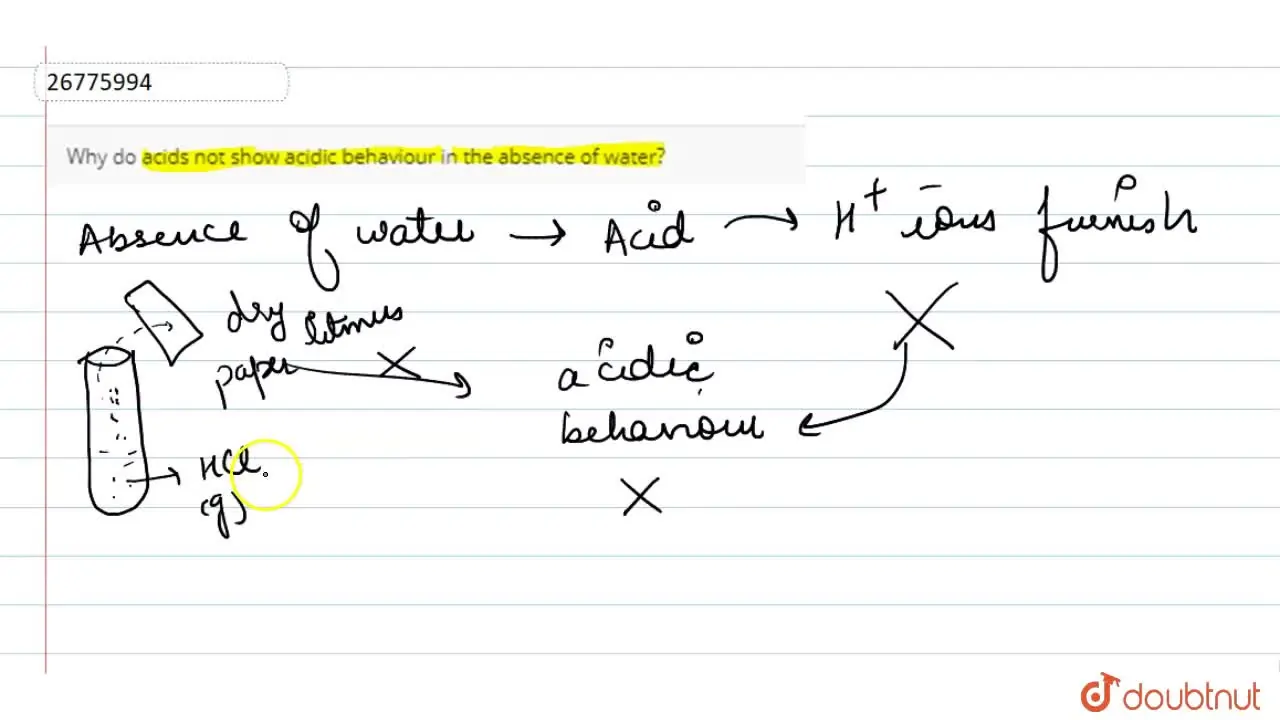 26775994
Why do acids not show acidic behaviour in the absence of water?
Absence of water → Acid → H+ ions furnish
dry litmus
paper
acidic
behaviour
HCl
(g)
doubtnut